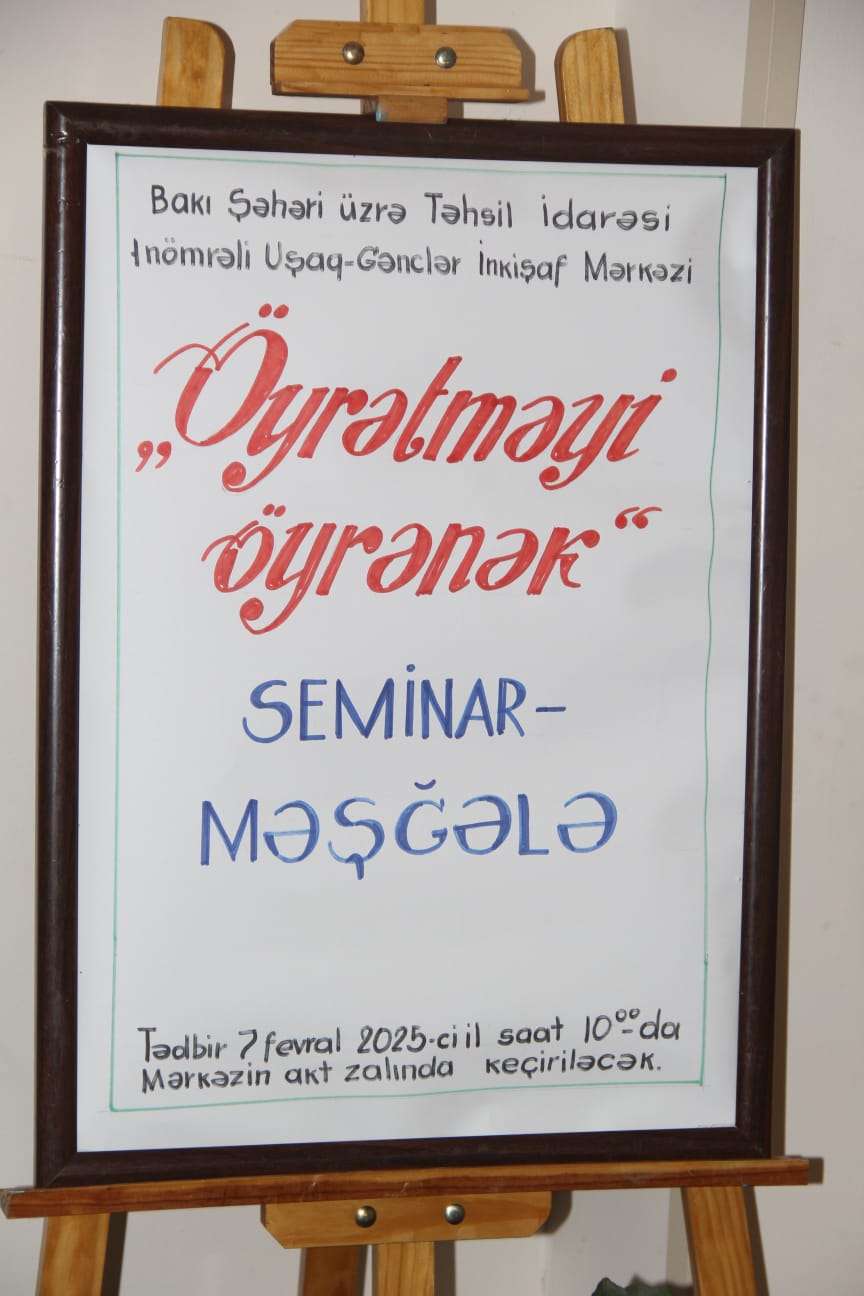 Bakı Şəhəri üzrə Təhsil İdarəsi
1nömrəli Uşaq-Gənclər İnkişaf Mərkəzi
„Öyrətməyi
öyrənək“
SEMİNAR-
MƏŞĞƏLƏ
Tədbir 7 fevral 2025-ci il saat 10⁰⁰-da
Mərkəzin akt zalında keçiriləcək.